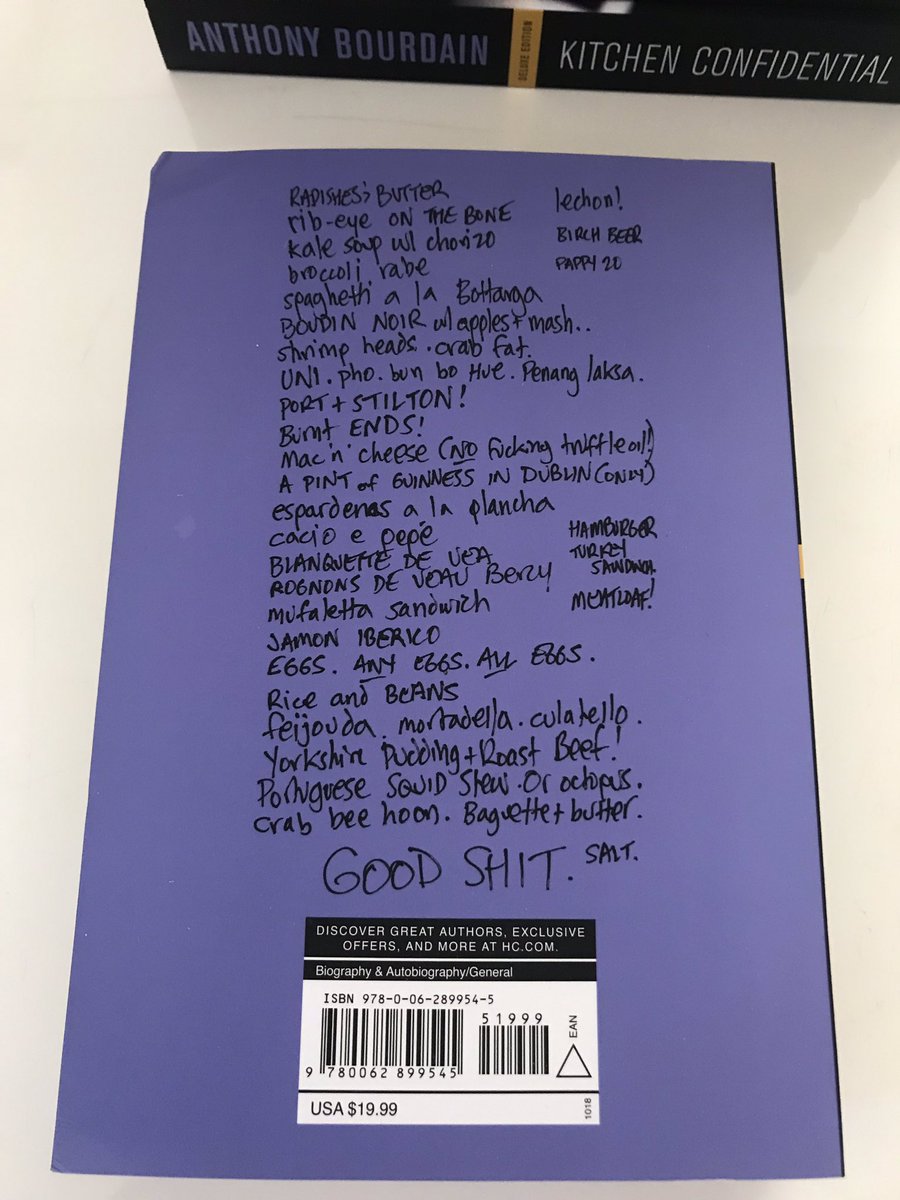 ANTHONY BOURDAIN
DELUXE EDITION
KITCHEN CONFIDENTIAL
RADISHES & BUTTER
rib-eye ON THE BONE
kale soup w/ chorizo
broccoli rabe
spaghetti a la Bottarga
BOUDIN NOIR w/ apples + mash..
shrimp heads. crab fat.
UNI. pho. bun bo Hue. Penang laksa.
PORT + STILTON!
Burnt ENDS!
Mac 'n' cheese (NO fucking truffle oil!)
A PINT of GUINNESS IN DUBLIN (ONLY)
espardenas a la plancha
cacio e pepé
BLANQUETTE DE VEA
ROGNONS DE VEAU Bercy
mufaletta sandwich
JAMON IBERICO
EGGS. ANY EGGS. ALL EGGS.
Rice and BEANS
feijouda. mortadella. culatello.
Yorkshire Pudding + Roast Beef!
Portuguese SQUID Stew. Or octopus.
Crab bee hoon. Baguette + butter.
lechon!
BIRCH BEER
PAPPY 20
HAMBURGER
TURKEY
SANDWICH.
MEATLOAF!
GOOD SHIT.
SALT.
DISCOVER GREAT AUTHORS, EXCLUSIVE
OFFERS, AND MORE AT HC.COM.
Biography & Autobiography/General
ISBN 978-0-06-289954-5
51999
EAN
9 780062 899545
USA $19.99
1018